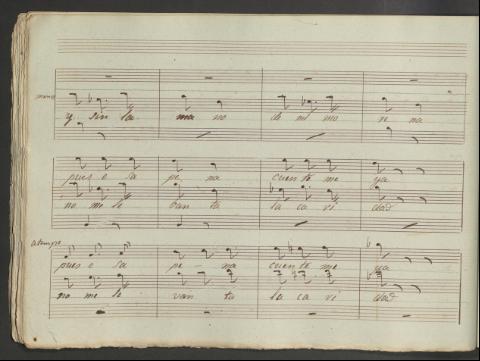 y sin la mano de mi mo re na
pues e sa pe na cuen te me ya
no me le van ta la ca ri dad
a tempo
pues e sa pe na cuen te me ya
no me le van ta la ca ri dad